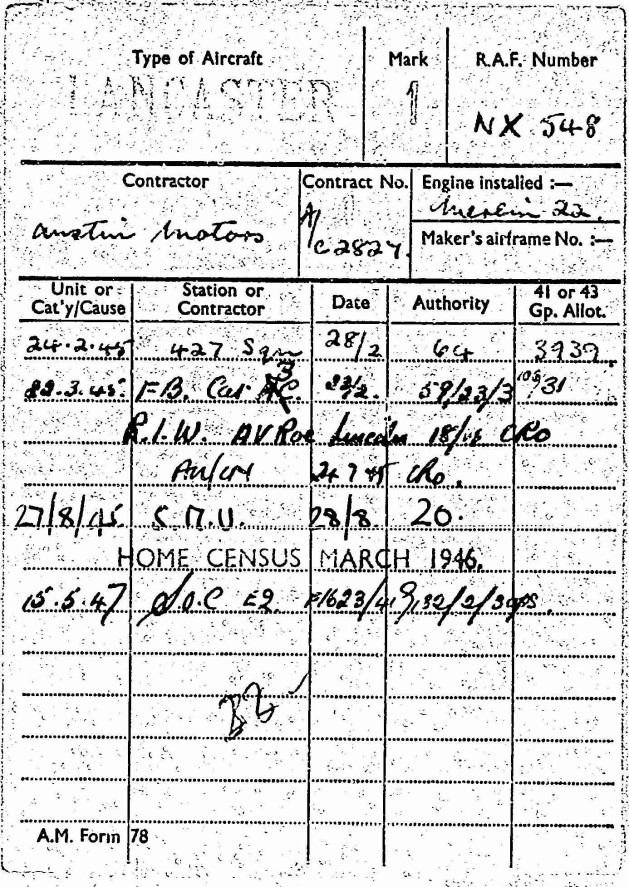 Type of Aircraft Mark R.A.F. Number
LANCASTER 1 NX 548
Contractor Contract No. Engine installed :—
Austin Motors A/C 2827. Merlin 22.
Maker's airframe No. :—
Unit or Cat'y/Cause Station or Contractor Date Authority 41 or 43 Gp. Allot.
24.2.45 427 Sqn 28/2 64 3939.
22.3.45. F.B. Cat 59/23/3 31
R.I.W. AV Roe Lincoln CRO
24 7 45 CRO.
27/8/45 5 M.U. 28/8 20.
HOME CENSUS MARCH 1946.
15.5.47 S.O.C E2.
A.M. Form 78